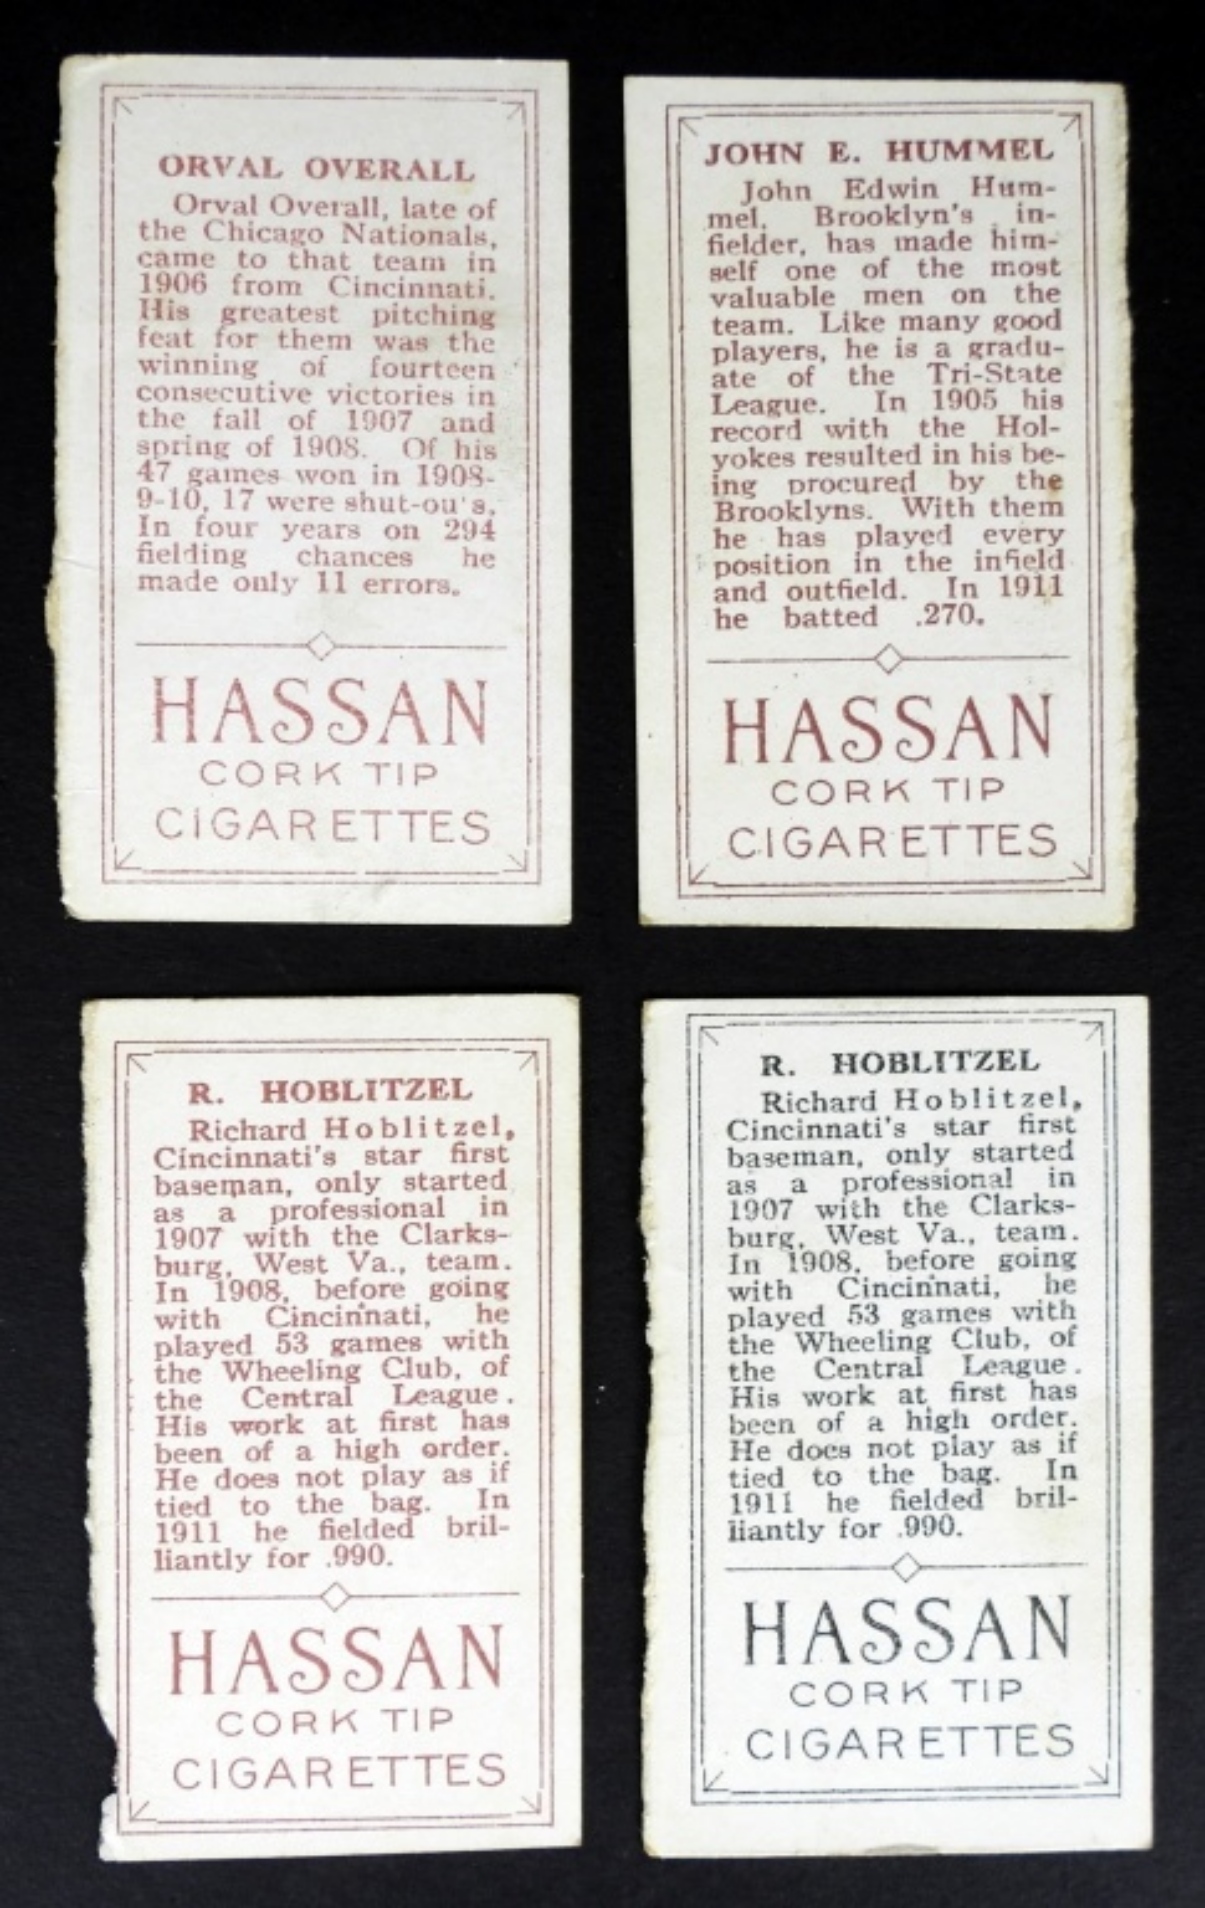 ORVAL OVERALL
Orval Overall, late of
the Chicago Nationals,
came to that team in
1906 from Cincinnati.
His greatest pitching
feat for them was the
winning of fourteen
consecutive victories in
the fall of 1907 and
spring of 1908. Of his
47 games won in 1908-
9-10, 17 were shut-ou's.
In four years on 294
fielding chances he
made only 11 errors.
HASSAN
CORK TIP
CIGARETTES
JOHN E. HUMMEL
John Edwin Hum-
mel. Brooklyn's in-
fielder, has made him-
self one of the most
valuable men on the
team. Like many good
players, he is a gradu-
ate of the Tri-State
League. In 1905 his
record with the Hol-
yokes resulted in his be-
ing procured by the
Brooklyns. With them
he has played every
position in the infield
and outfield. In 1911
he batted .270.
HASSAN
CORK TIP
CIGARETTES
R. HOBLITZEL
Richard Hoblitzel,
Cincinnati's star first
baseman, only started
as a professional in
1907 with the Clarks-
burg, West Va., team.
In 1908, before going
with Cincinnati, he
played 53 games with
the Wheeling Club, of
the Central League.
His work at first has
been of a high order.
He does not play as if
tied to the bag. In
1911 he fielded bril-
liantly for .990.
HASSAN
CORK TIP
CIGARETTES
R. HOBLITZEL
Richard Hoblitzel,
Cincinnati's star first
baseman, only started
as a professional in
1907 with the Clarks-
burg, West Va., team.
In 1908, before going
with Cincinnati, he
played 53 games with
the Wheeling Club, of
the Central League.
His work at first has
been of a high order.
He does not play as if
tied to the bag. In
1911 he fielded bril-
liantly for .990.
HASSAN
CORK TIP
CIGARETTES